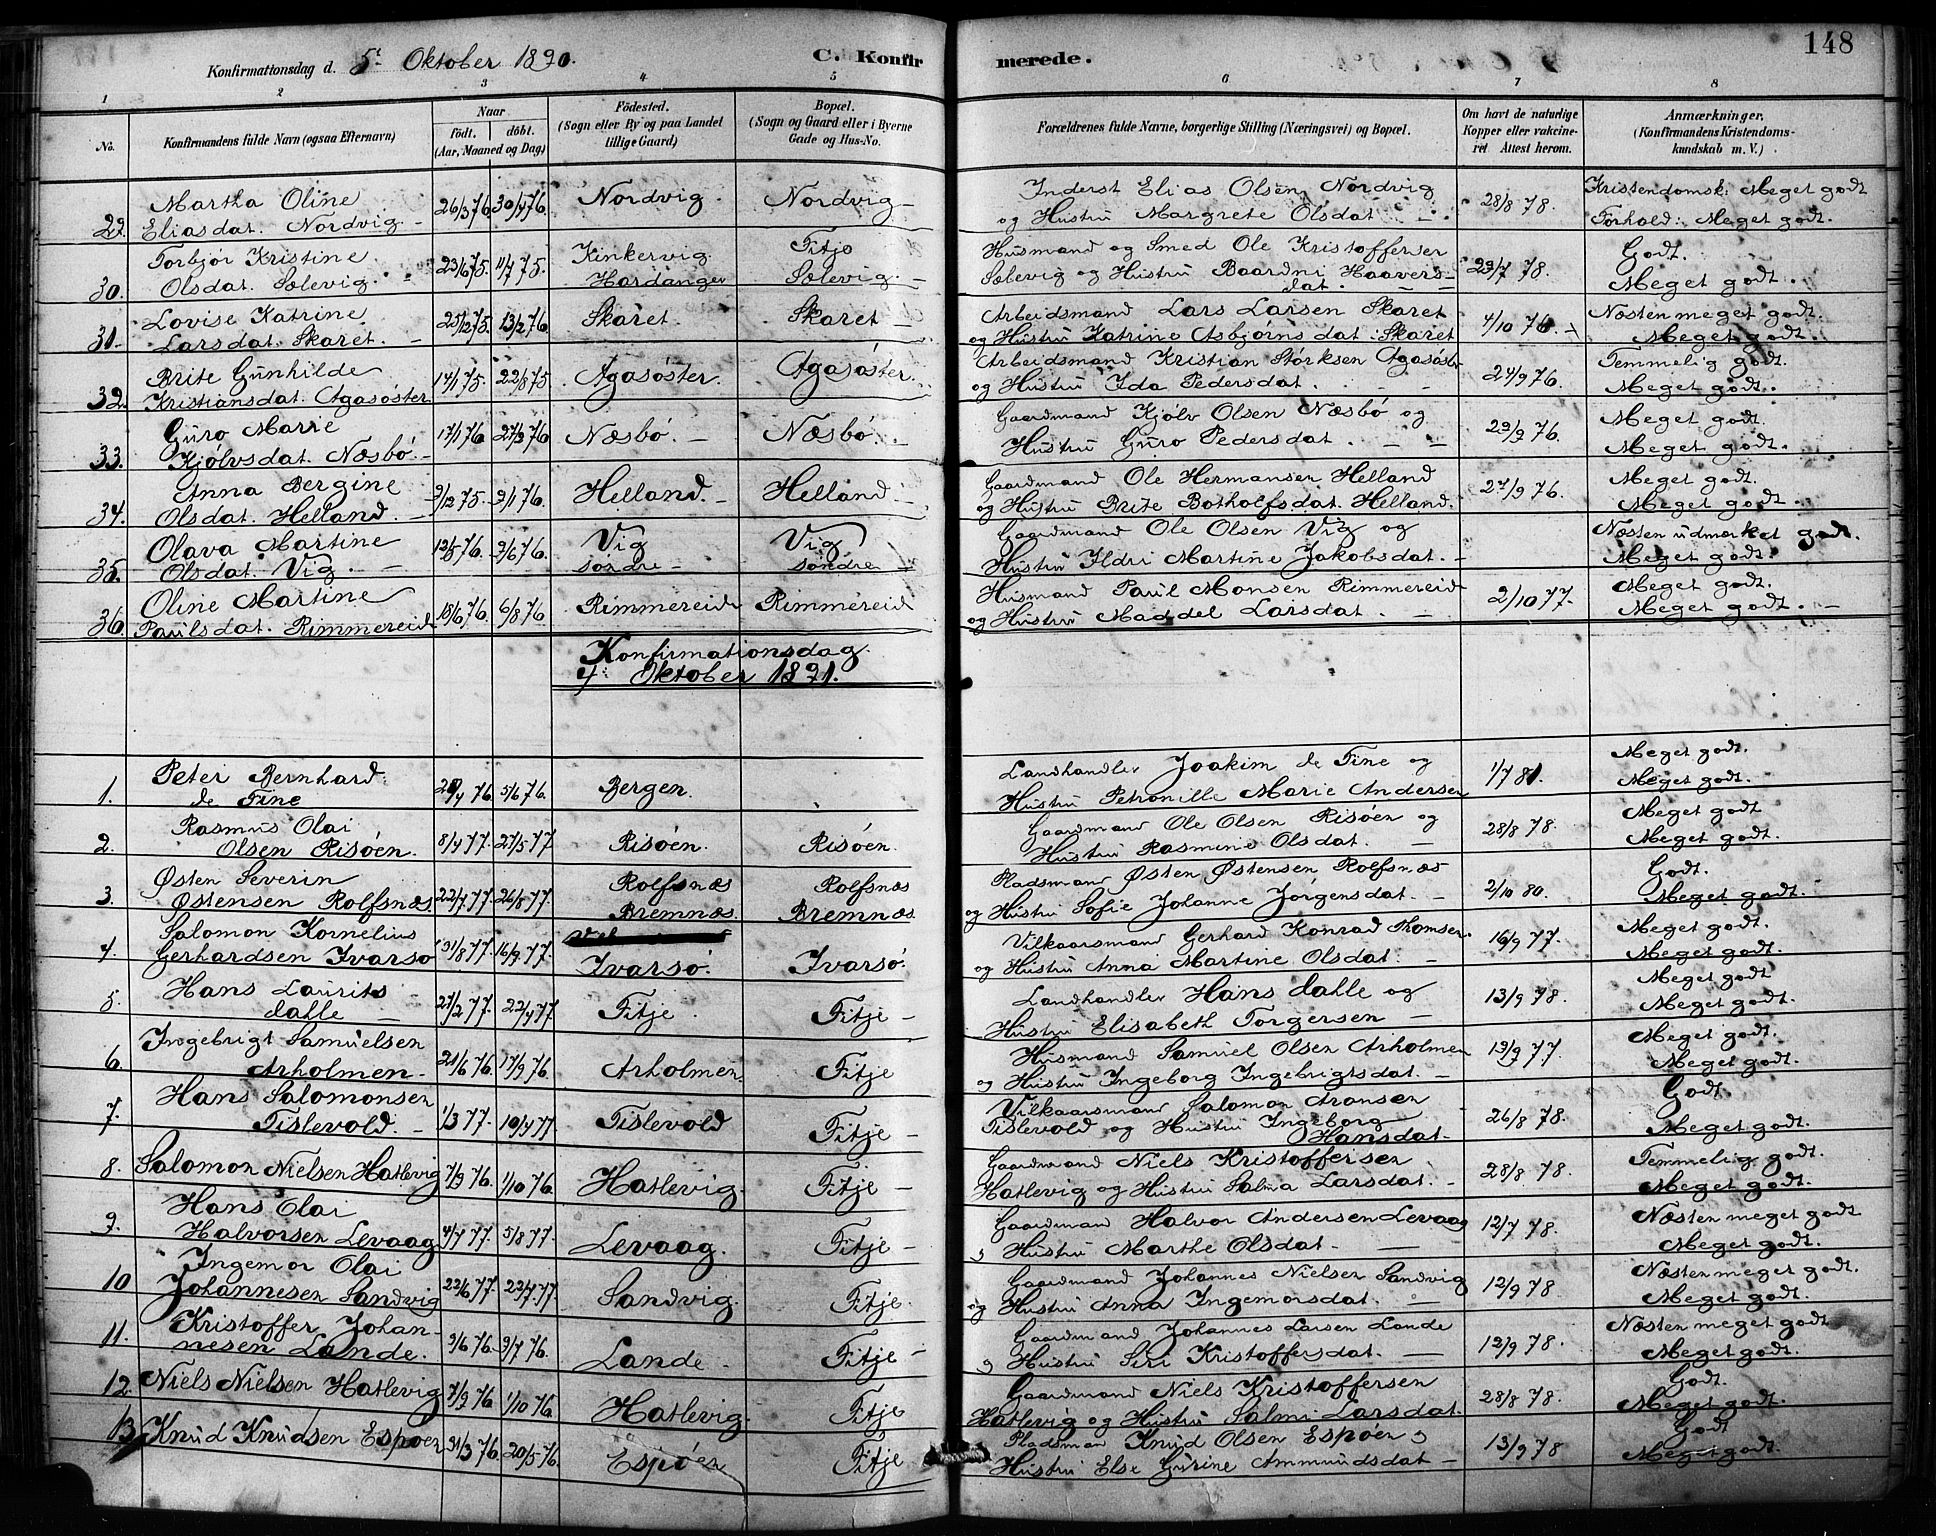 148
Konfirmationsdag d. 5t Oktober 1890.
C. Konfirmerede.
1 2 3 4 5 6 7 8
No.
Konfirmandens fulde Navn (ogsaa Efternavn)
Naar
födt. döbt.
(Aar, Maaned og Dag)
Födested.
(Sogn eller By og paa Landet
tillige Gaard)
Bopæl.
(Sogn og Gaard eller i Byerne
Gade og Hus-No.
Forældrenes fulde Navne, borgerlige Stilling (Næringsvei) og Bopæl.
Om havt de naturlige
Kopper eller vakcine-
ret Attest herom.
Anmærkninger.
(Konfirmandens Kristendoms-
kundskab m. V.)
Martha Oline Nordvig. Nordvig Inderst Elias Olsen Nordvig Kristendomsk: Meget godt
29. Eliasdat. Nordvig. 26/3 76 30/4 76. og Hustru Margrete Olsdat 28/8 78. Forhold: Meget godt.
Torbjør Kristine Kinkervig Fitje Husmand og Smed Ole Kristoffersen Godt.
30. Olsdat. Sælevig. 23/6 75. 11/7 75. Hardanger Sælevig. Sælevig og Hustru Baardni Haavers- 29/7 78. Meget godt.
dat.
Lovise Katrine Skaret. Skaret Arbeidsmand Lars Larsen Skaret Næsten meget godt.
31. Larsdat. Skaret. 25/12 75. 13/2 76. og Hustru Katrine Asbjørnsdat. Skaret 4/10 76. Meget godt.
Brite Gunhilde Agasöster. Agasöster. Arbeidsmand Kristian Störksen Agasöster Temmelig godt.
32. Kristiansdat. Agasöster 14/1 75. 22/8 75 og Hustru Ida Pedersdat. 24/9 76. Meget godt.
Guro Marie Næsbö. Næsbö. Gaardmand Kjölv Olsen Næsbö og Meget godt.
33. Kjölvsdat. Næsbö. 17/1 76. 27/3 76 Hustru Guro Pedersdat. 29/9 76. Meget godt.
Anna Bergine Helland. Helland Gaardmand Ole Hermansen Helland Meget godt.
34. Olsdat. Helland. 9/12 75. 9/1 76. og Hustru Brite Botholfsdat. Helland. 27/9 76. Meget godt.
Olava Martine Vig Vig Gaardmand Ole Olsen Vig og Næsten udmerket godt.
35. Olsdat. Vig. 12/5 76. 9/6 76. söndre söndre Hustru Ildri Martine Jakobsdat. Meget godt.
Oline Martine Rimmereid Rimmereid Husmand Paul Monsen Rimmereid Meget godt.
36. Paulsdat. Rimmereid 18/6 76. 6/8 76 og Hustru Maddel Larsdat. 2/10 77. Meget godt.
Konfirmationsdag
4. Oktober 1891.
Peter Bernhard Bergen. Landhandler Joakim de Fine og Meget godt.
1. de Fine 5/6 76. Hustru Petronille Marie Andersen 1/7 81. Meget godt.
Rasmus Olai Risöen. Risöen. Gaardmand Ole Olsen Risöen og Meget godt.
2. Olsen Risöen. 8/4 77. 27/5 77 Hustru Rasmine Olsdat. 28/8 78. Meget godt.
Østen Severin Rolfsnæs Rolfsnæs Pladsmand Østen Østensen Rolfsnæs Godt.
3. Østensen Rolfsnæs. 22/7 77. 26/8 77. Bremnæs. Bremnæs. og Hustru Sofie Johanne Jörgensdat. 2/10 80. Meget godt.
Salomon Kornelius Vilkaarsmand Gerhard Konrad Thomsen Meget godt.
4. Gerhardsen Ivarsö 31/8 77. 16/9 77. Ivarsö. Ivarsö. og Hustru Anna Martine Olsdat. 16/9 77. Meget godt.
Hans Laurits Fitje. Fitje Landhandler Hans dahle og Meget godt
5. dahle 27/2 77. 22/4 77 Hustru Elisabeth Torgersen 13/9 78. Meget godt.
Ingebrigt Samuelsen Arholmen. Fitje Husmand Samuel Olsen Arholmen Meget godt.
6. Arholmen. 21/6 76. 17/9 76. og Hustru Ingeborg Ingebrigtsdat. 19/9 77. Meget godt.
Hans Salomonsen Tislevold Fitje Vilkaarsmand Salomon Aronsen Godt.
7. Tislevold. 1/3 77. 10/4 77 Tislevold og Hustru Ingeborg Hansdat. 26/8 78. Meget godt.
8. Salomon Nielsen Hatlevig 7/9 76. 1/10 76. Hatlevig. Fitje Gaardmand Niels Kristoffersen Temmelig godt.
Hatlevig og Hustru Salma Larsdat. 28/8 78. Meget godt.
Hans Olai Levaag. Fitje Gaardmand Halvor Andersen Levaag Næsten meget godt
9. Halvorsen Levaag 4/7 77. 5/8 77. Hustru Marthe Olsdat. 12/7 78. Meget godt.
Ingemor Olai Sandvig. Fitje. Gaardmand Johannes Nielsen Sandvig Næsten meget godt.
10 Johannesen Sandvig 22/6 77. 22/7 77. og Hustru Anna Ingemorsdat. 12/9 78. Meget godt.
Kristoffer Johan- Lande. Fitje Gaardmand Johannes Larsen Lande Næsten meget godt
11. nesen Lande. 9/6 76. 9/7 76. Hustru Siri Kristoffersdat. 12/9 78. Meget godt.
12. Niels Nielsen Hatlevig 7/9 76. 1/10 76. Hatlevig. Fitje Gaardmand Niels Kristoffersen Godt.
Hatlevig og Hustru Salmi Larsdat. 28/8 78. Meget godt.
13. Knud Knudsen Espöen 31/3 76. 20/5 76. Espöen Fitje Pladsman Knud Olsen Espöen Godt
Hustru Else Gurine Ammundsdat 13/9 78 Meget godt.